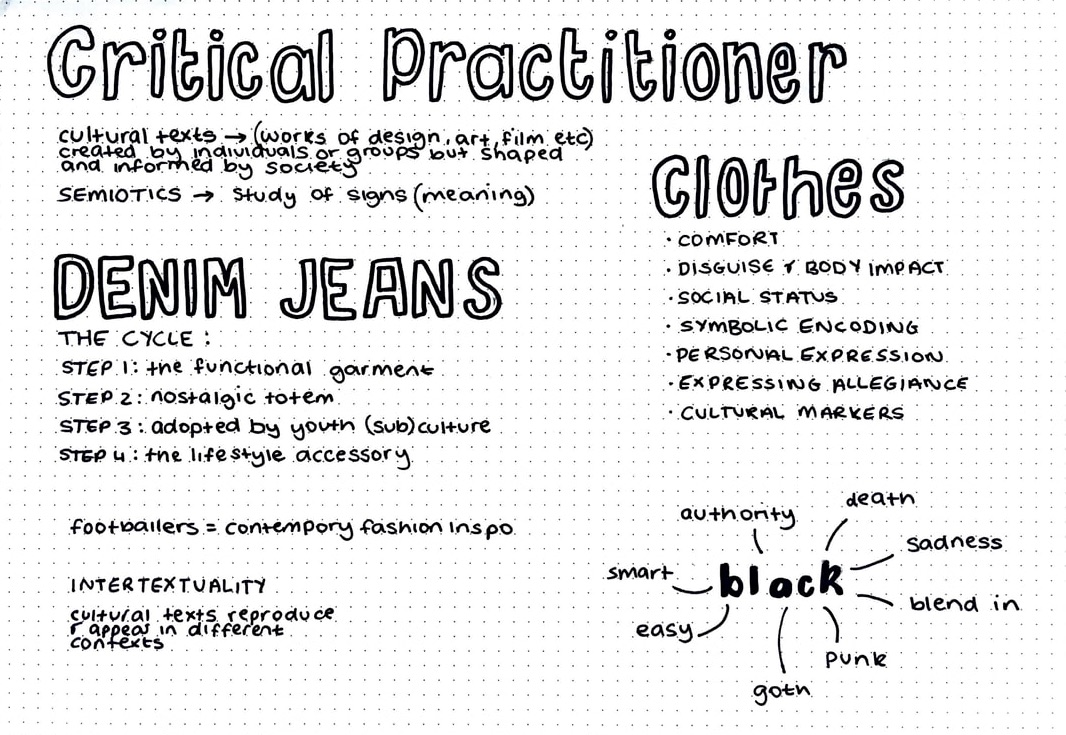 Critical Practitioner
cultural texts → (works of design, art, film etc)
created by individuals or groups but shaped
and informed by society
SEMIOTICS → study of signs (meaning)
DENIM JEANS
THE CYCLE :
STEP 1: the functional garment
STEP 2: nostalgic totem
STEP 3: adopted by youth (sub)culture
STEP 4: the lifestyle accessory
footballers = contempory fashion inspo
INTERTEXTUALITY
cultural texts reproduce
& appear in different
contexts
Clothes
· COMFORT
· DISGUISE & BODY IMPACT
· SOCIAL STATUS
· SYMBOLIC ENCODING
· PERSONAL EXPRESSION
· EXPRESSING ALLEGIANCE
· CULTURAL MARKERS
black
authority
death
sadness
blend in
punk
goth
easy
smart